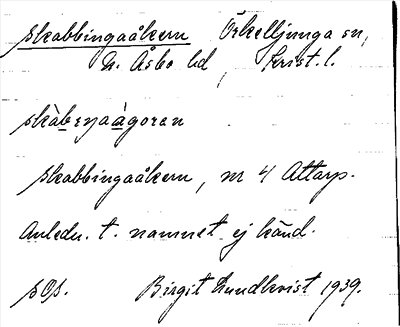 skabbingaåkern Örkelljunga sn,
N. Åsbo hd, Krist. l.
skàbeŋaågoran
skabbingaåkern, nr 4 Attarp.
Anledn. t. namnet ej känd.
Birgit Lundkvist 1939.